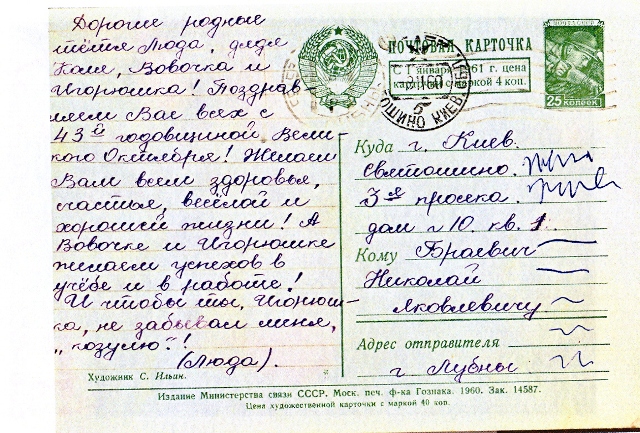 Дорогие родные
тётя Люда, дядя
Коля, Вовочка и
Игорюшка! Поздрав
ляем Вас всех с
43ей годовщиной Вели-
кого Октября! Желаем
Вам всем здоровья,
счастья, весёлой и
хорошей жизни! А
Вовочке и Игорюшке
желаем успехов в
учёбе и в работе!
И чтобы ты, Игорюш-
ка, не забывал меня,
„козулю"!
(Люда).
Художник С. Ильин.
ПОЧТОВАЯ КАРТОЧКА
С 1 января 1961 г. цена
карточки с маркой 4 коп.
ПОЧТА СССР
25 КОПЕЕК
Куда г. Киев.
Святошино.
3ья просека.
дом № 10 кв. 1.
Кому
Николай
Яковлевичу
Адрес отправителя
г Лубны
Издание Министерства связи СССР. Моск. печ. ф-ка Гознака. 1960. Зак. 14587.
Цена художественной карточки с маркой 40 коп.